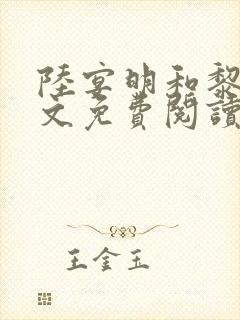 陸宴明和黎
文免費閱讀
王金玉